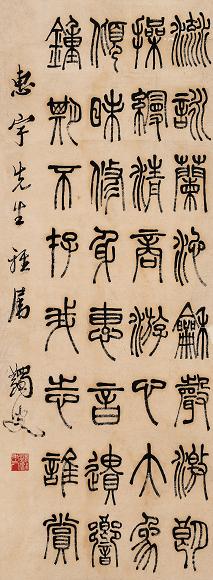 流詠蘭池龢聲激朗
操縵清商游心大象
傾昧修身惠音遺響
鐘期不存我志誰賞
惠宇先生雅屬 蠲叟